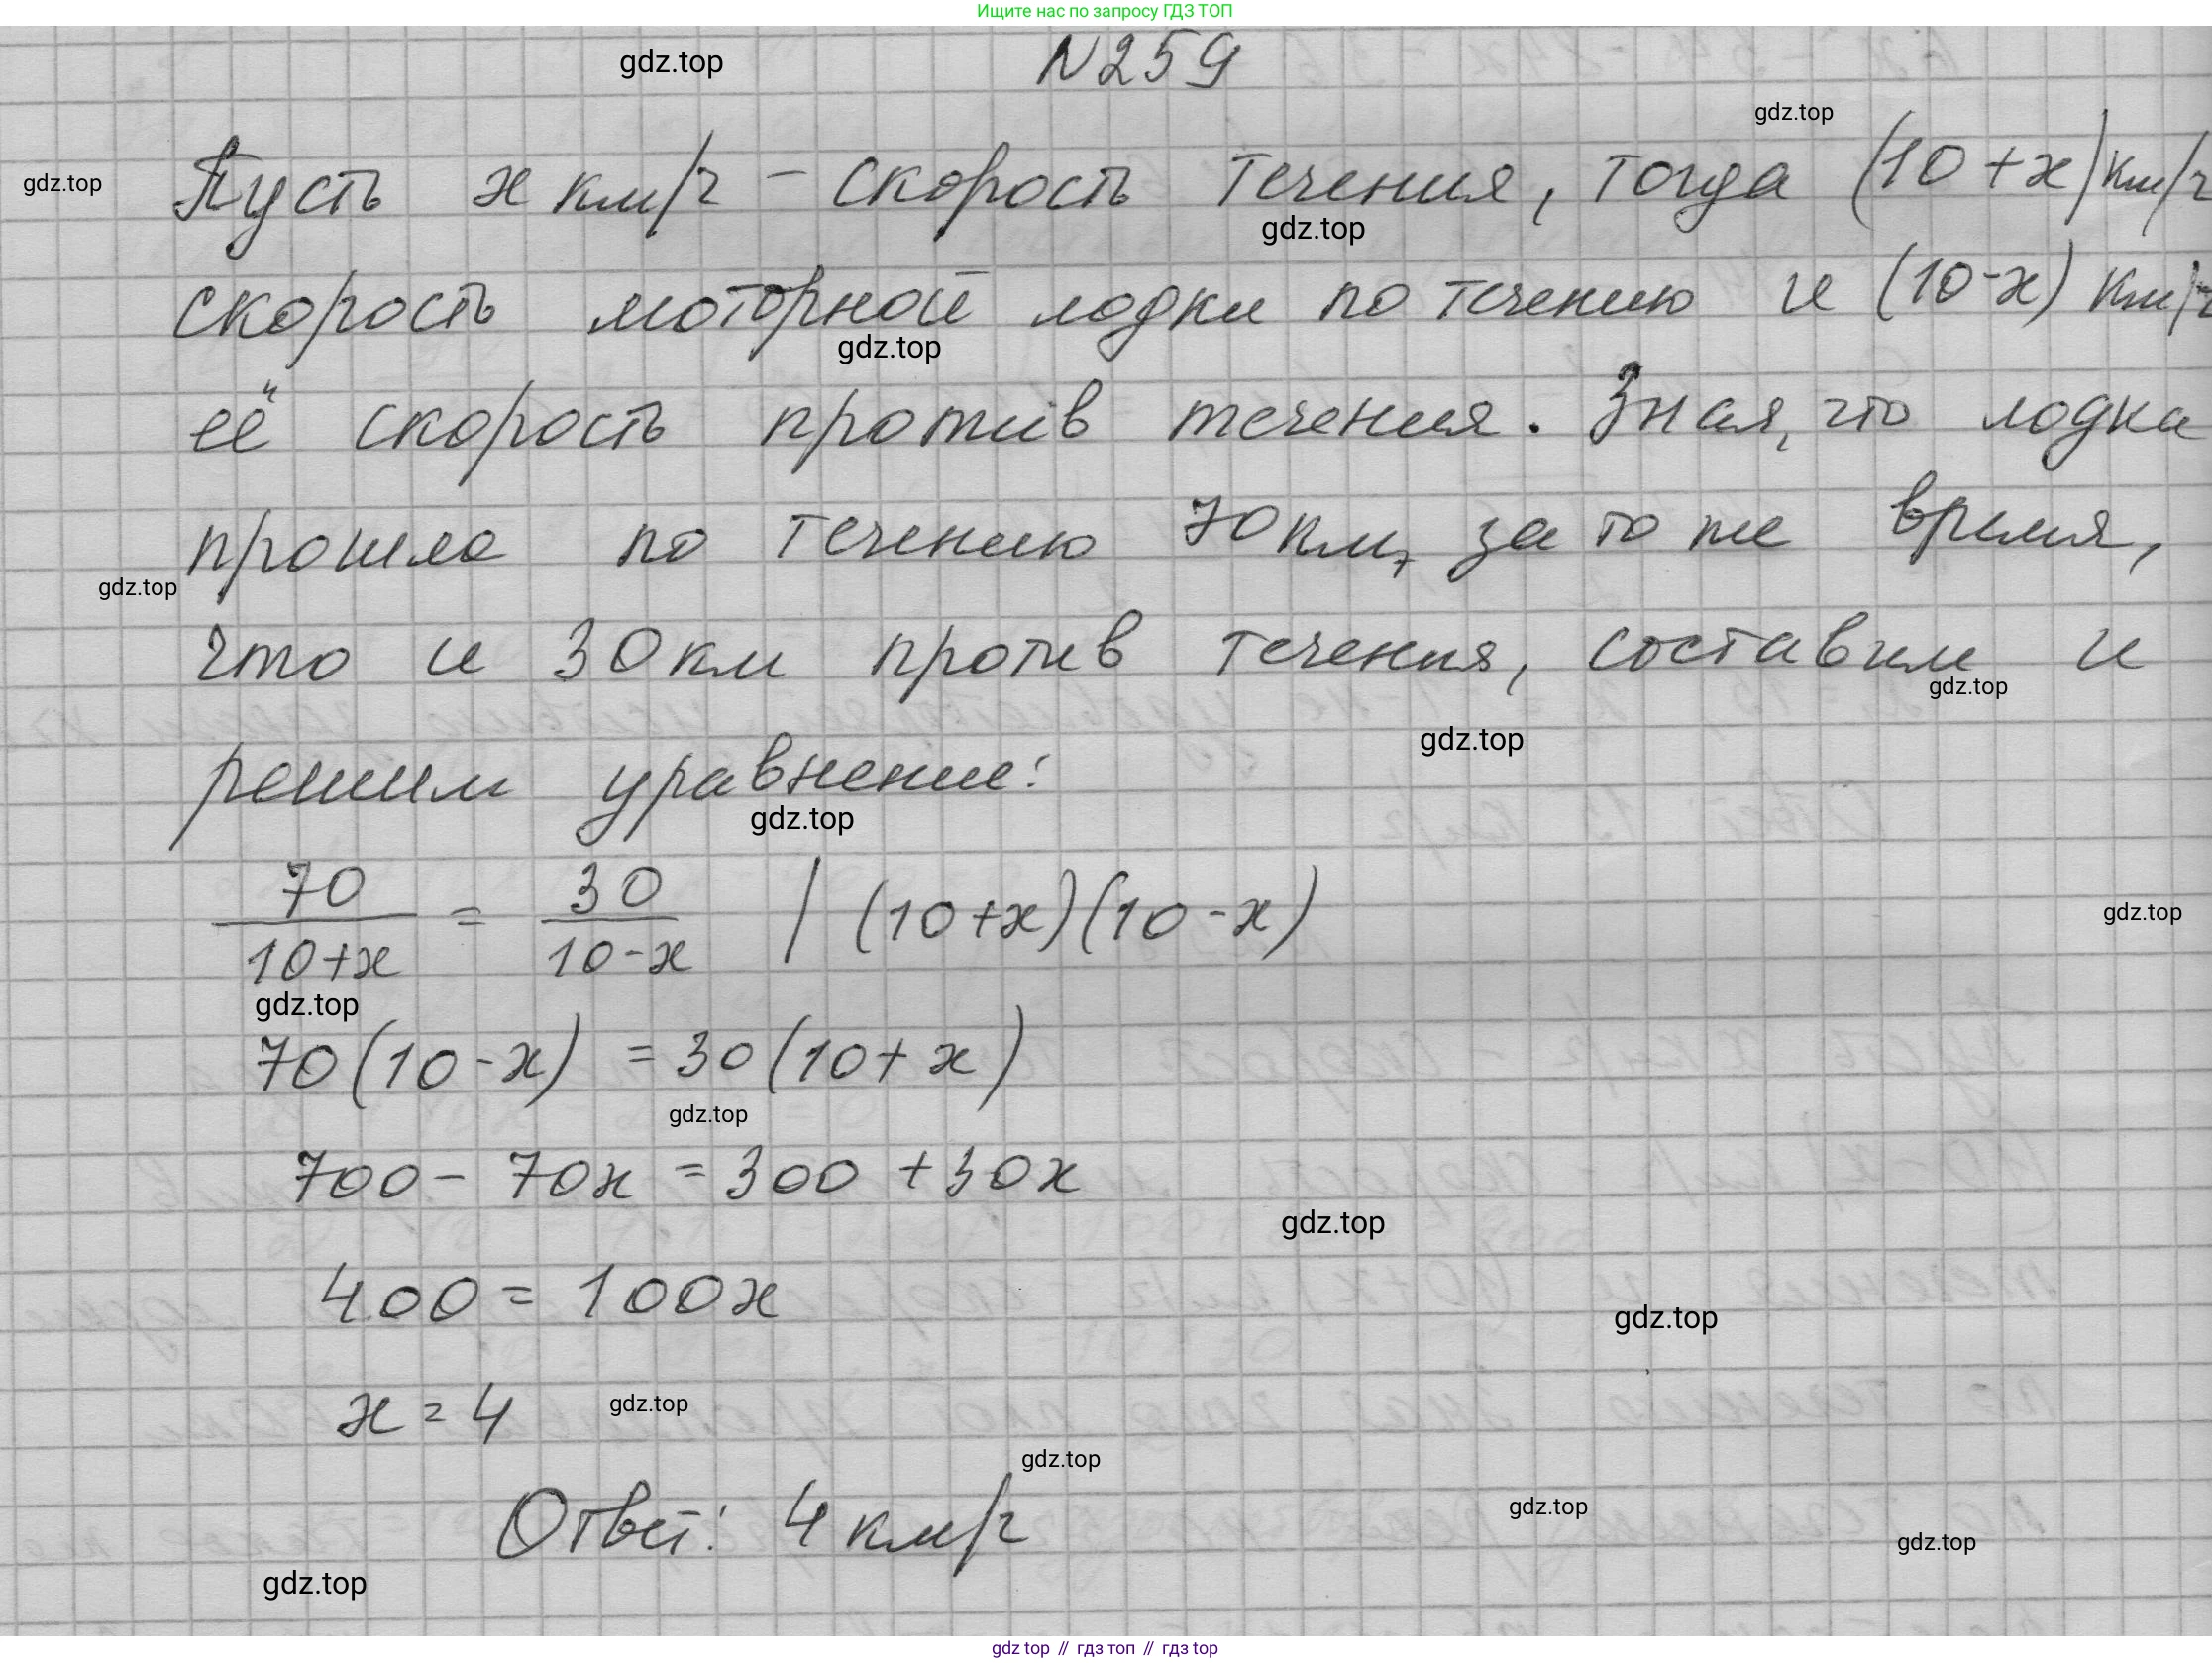 Ищите нас по запросу ГДЗ ТОП
gdz.top
N259
gdz.top
gdz.top
Пусть x км/ч – скорость течения, тогда (10+x) км/ч
gdz.top
скорость моторной лодки по течению и (10-x) км/ч
gdz.top
её скорость против течения. Зная, что лодка
прошла по течению 70 км, за то же время,
gdz.top
что и 30 км против течения, составим и
gdz.top
gdz.top
решим уравнение:
gdz.top
70/(10+x) = 30/(10-x) | (10+x)(10-x)
gdz.top
gdz.top
70(10-x) = 30(10+x)
gdz.top
700 - 70x = 300 + 30x
gdz.top
400 = 100x
gdz.top
x = 4
gdz.top
gdz.top
Ответ: 4 км/ч
gdz.top
gdz.top
gdz.top
gdz top // гдз топ // гдз top